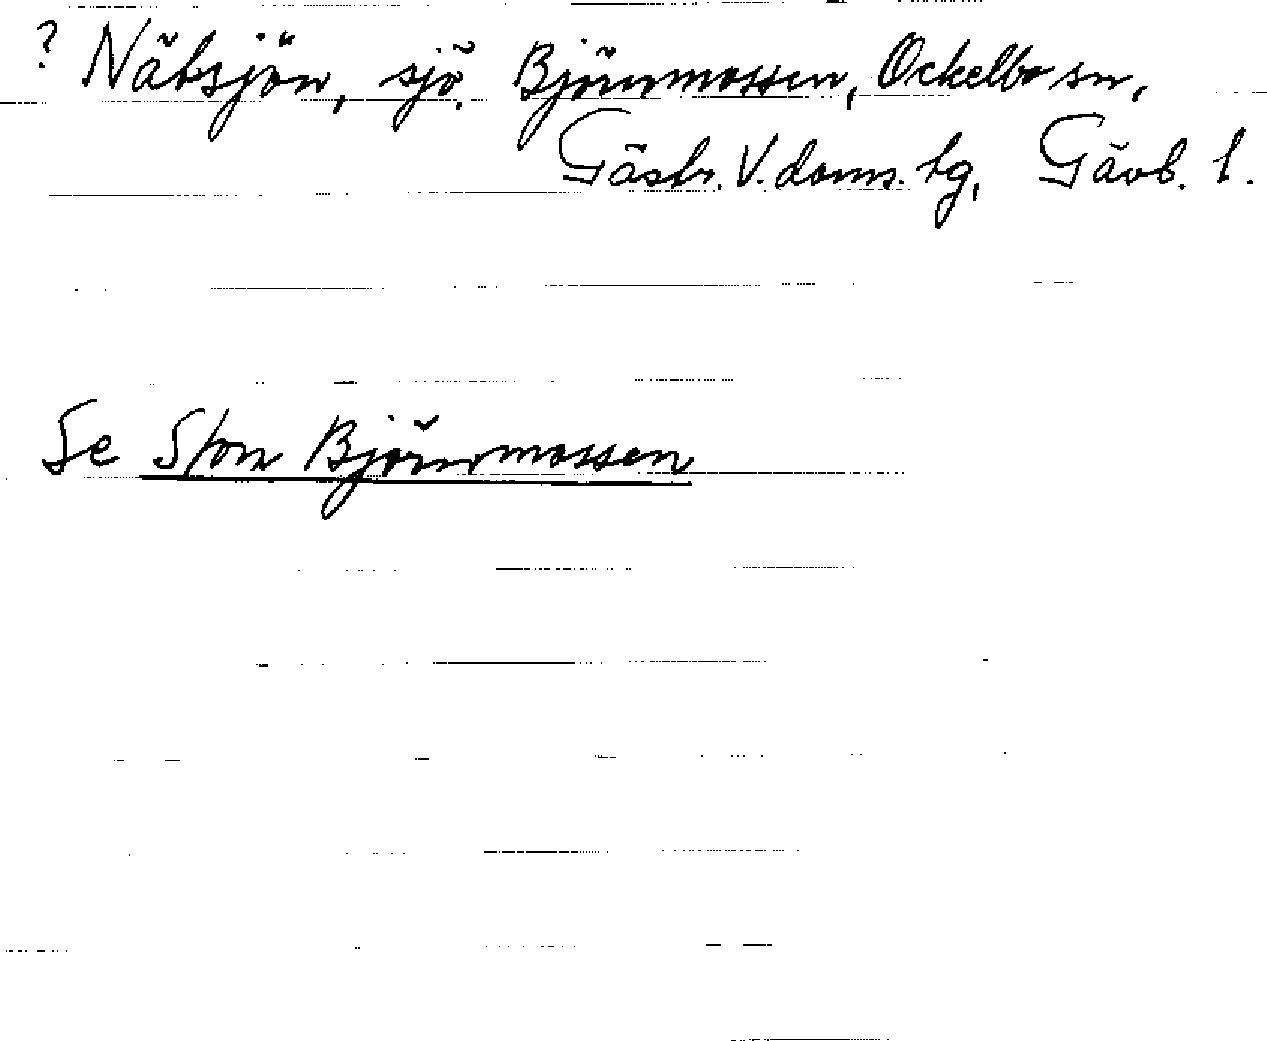 ? Nätsjön, sjö. Björnmossen, Ockelbo sn,
Gästr. V. doms. tg, Gävb. l.
Se Ston Björnmossen